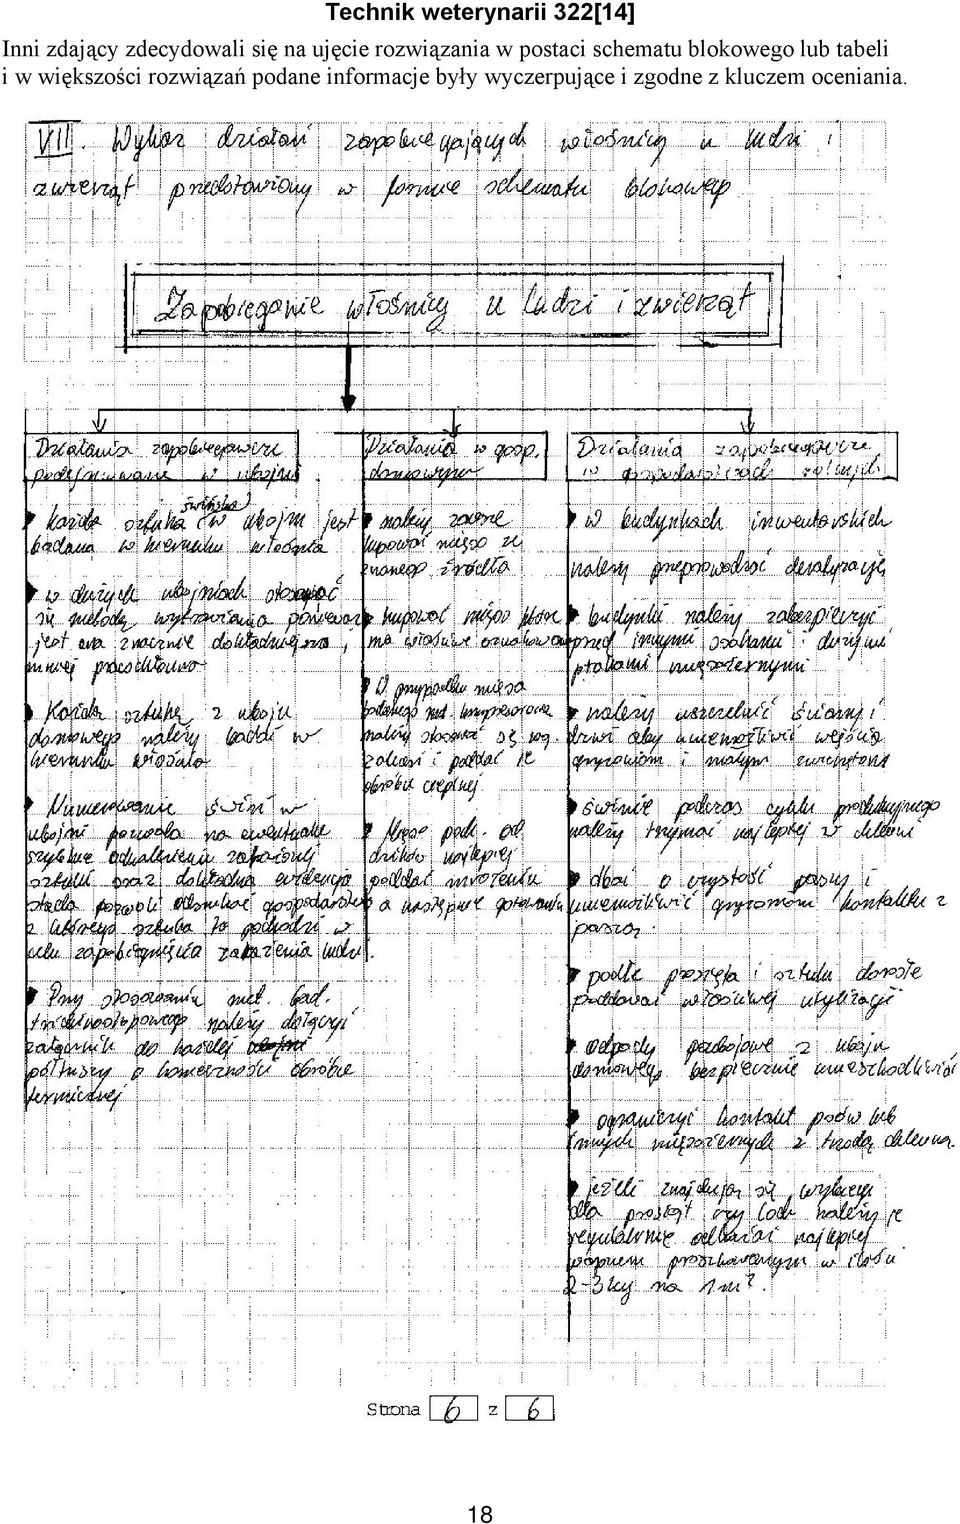 Technik weterynarii 322[14]
Inni zdający zdecydowali się na ujęcie rozwiązania w postaci schematu blokowego lub tabeli
i w większości rozwiązań podane informacje były wyczerpujące i zgodne z kluczem oceniania.
VII. Wykaz działań zapobiegających włośnicy u ludzi i
zwierząt przedstawiony w formie schematu blokowego
Zapobieganie włośnicy u ludzi i zwierząt
Działania zapobiegawcze
podejmowane w ubojni.
każda sztuka (świńska) w ubojni jest
badana w kierunku włośnia
w dużych ubojniach stosować
się metodę wytrawiania ponieważ
jest ona znacznie dokładniejsza,
mniej pracochłonna
Każdą sztukę z uboju
domowego należy badać w
kierunku włośnia
Numerowanie świń w
ubojni pozwala na ewentualne
szybkie odnalezienie zarażonej
sztuki oraz dokładna ewidencja
stada pozwoli odszukać gospodarstwo
z którego sztuka to pochodzi w
celu zapobiegnięcia zakażenia ludzi.
Przy stosowaniu met. bad.
trichinoskopowego należy dołączyć
załącznik do każdej
półtuszy o konieczności obróbce
termicznej
Działania w gosp.
domowym
należy zawsze
kupować mięso ze
znanego źródła
kupować mięso które
ma właściwe oznakowanie
W przypadku mięsa
badanego met. kompresorową
należy stosować się wg.
zaleceń i poddać je
obróbce cieplnej.
Mięso poch. od
dzików najlepiej
poddać mrożeniu
a następnie gotowaniu
Działania zapobiegawcze
w gospodarstwach rolnych.
W budynkach inwentarskich
należy przeprowadzać deratyzację
budynki należy zabezpieczyć
przed innymi osobami dużymi
ptakami mięsożernymi
należy uszczelnić ściany i
drzwi aby uniemożliwić wejścia
gryzoniom i małym zwierzętom
świnie podczas cyklu produkcyjnego
należy trzymać najlepiej w chlewni
dbać o czystość paszy i
uniemożliwić gryzoniom kontaktu z
paszą.
padłe prosięta i sztuki dorosłe
poddawać właściwej utylizacji
odpady poubojowe z uboju
domowego bezpiecznie unieszkodliwiać
ograniczyć kontakt psów lub
innych mięsożernych z trzodą chlewną
jeżeli znajdują się wybiegi
dla prosiąt czy loch należy je
regularnie odkażać najlepiej
wapnem proszkowanym w ilości
2-3kg na 1m².
Strona 6 z 6
18